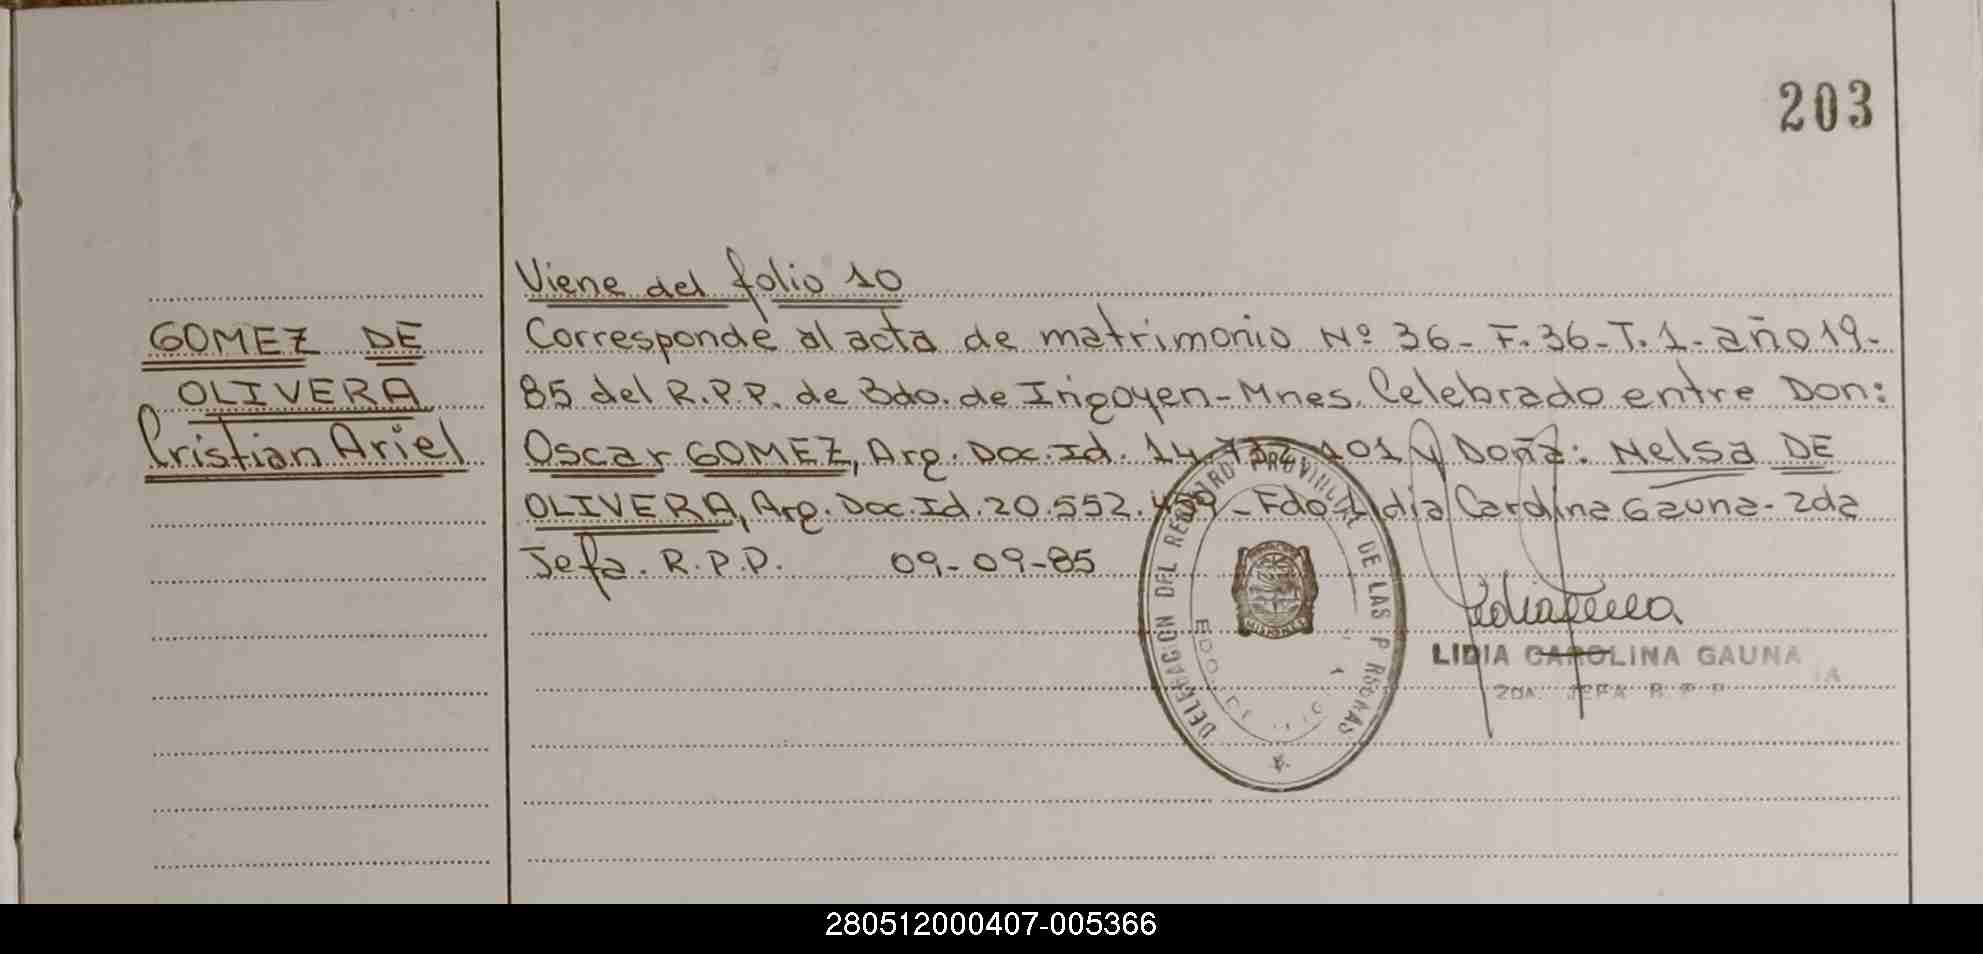 203
Viene del folio 10
GOMEZ DE
OLIVERA
Cristian Ariel
Corresponde al acta de matrimonio Nº 36- F.36-T.1-año 19-
85 del R.P.P. de Bdo. de Irigoyen-Mnes. Celebrado entre Don:
Oscar GOMEZ, Arg. Doc. Id. 14. 101 y Doña: Nelsa DE
OLIVERA, Arg. Doc. Id. 20.552.459 - Fdo Lidia Carolina Gauna- 2da
Jefa. R.P.P. 09-09-85
DELEGACION DEL REGISTRO PROVINCIAL DE LAS PERSONAS
BDO DE
MISIONES
LIDIA CAROLINA GAUNA
2DA. JEFA R.P.P
280512000407-005366